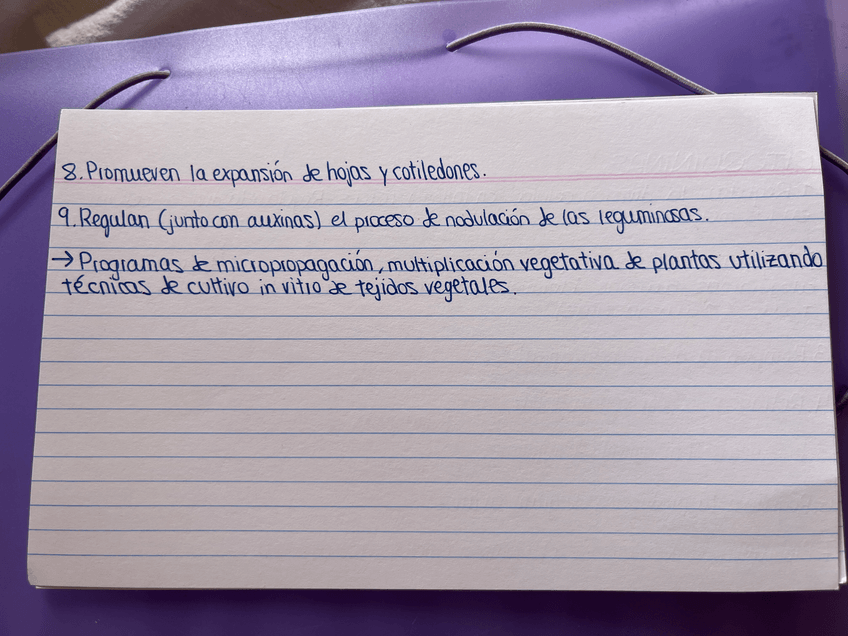 8. Promueven la expansión de hojas y cotiledones.
9. Regulan (junto con auxinas) el proceso de nodulación de las leguminosas.
→ Programas de micropropagación, multiplicación vegetativa de plantas utilizando
técnicas de cultivo in vitro de tejidos vegetales.